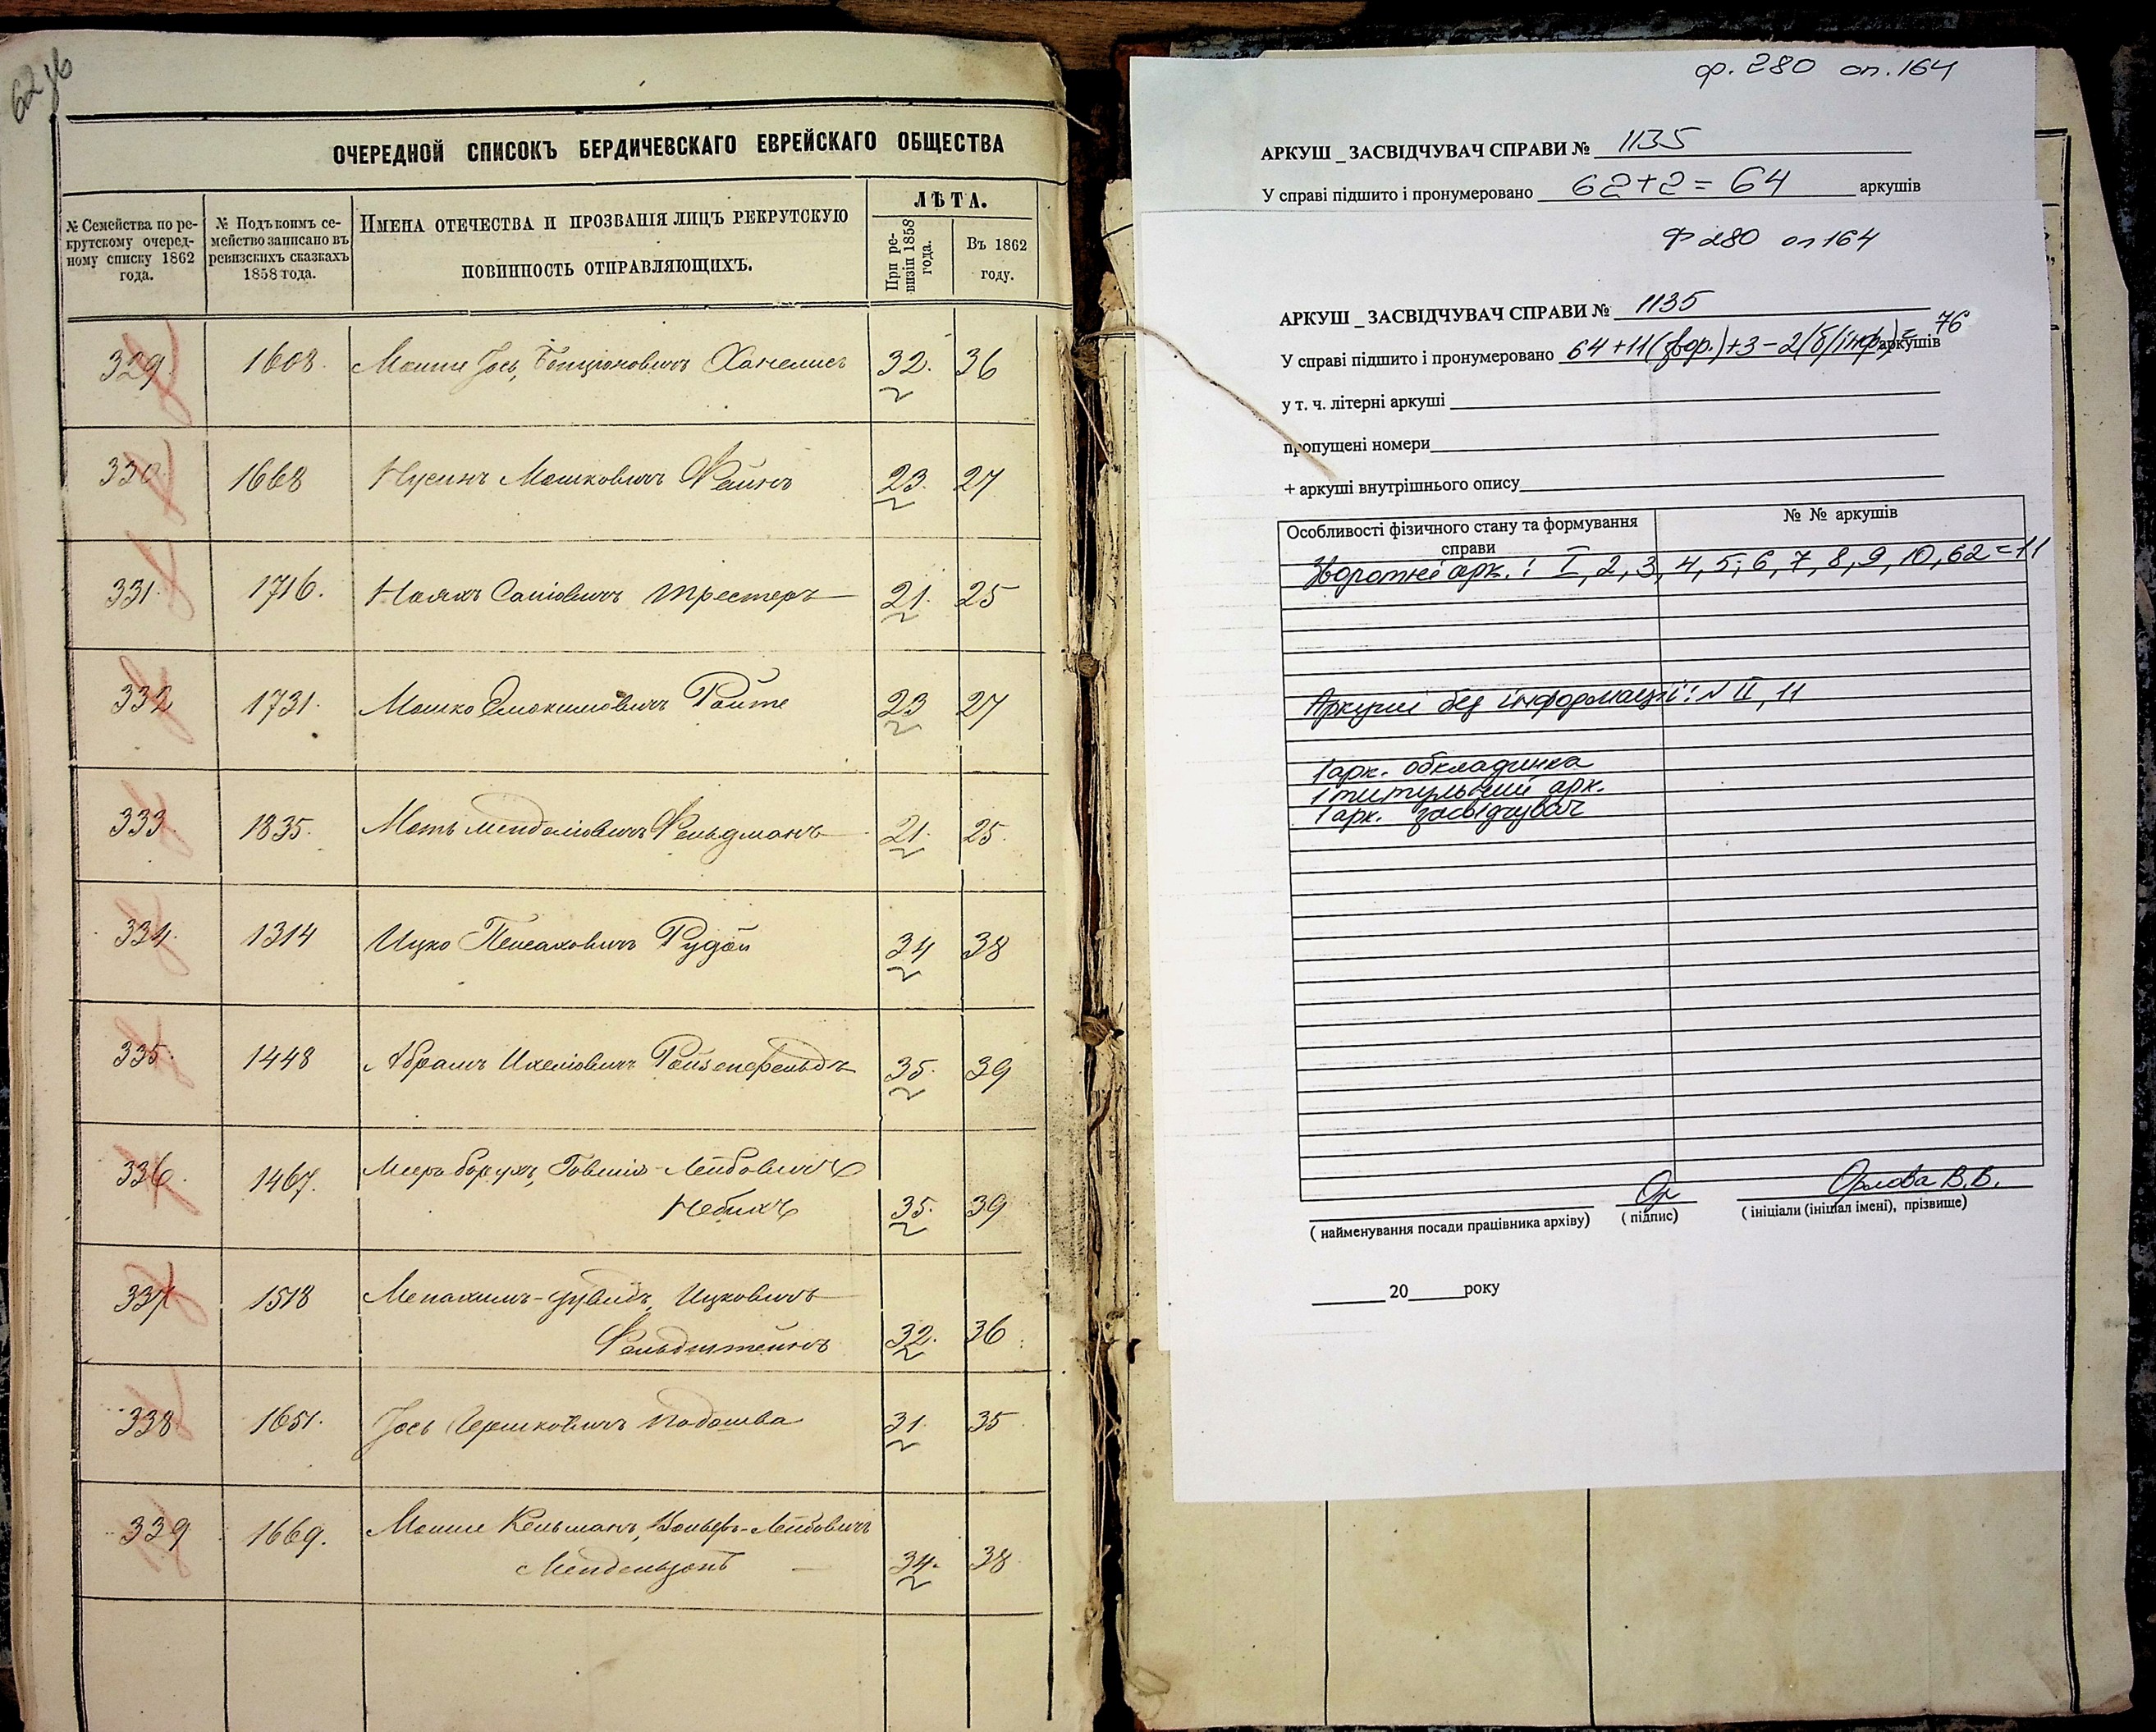 62 зв
ОЧЕРЕДНОЙ СПИСОКЪ БЕРДИЧЕВСКАГО ЕВРЕЙСКАГО ОБЩЕСТВА
№ Семейства по ре-
крутскому очеред-
ному списку 1862
года.
№ Подъ коимъ се-
мейство записано въ
ревизскихъ сказкахъ
1858 года.
ИМЕНА ОТЕЧЕСТВА И ПРОЗВАНІЯ ЛИЦЪ РЕКРУТСКУЮ
ПОВИННОСТЬ ОТПРАВЛЯЮЩИХЪ.
ЛѢТА.
При ре-
визіи 1858
года.
Въ 1862
году.
329. 1608. Мошко Іось, Бенціоновичъ Ханелисъ 32. 36
330. 1668 Нусинъ Мошковичъ Фейнъ 23. 27
331. 1716. Нояхъ Трестеръ 21. 25
332 1731. Мошко Ройте 23 27
333. 1835. Моть Менделіовичъ Фельдманъ 21. 25.
334. 1314 Ицко Пейсаховичъ Рудой 34 38
335. 1448 Абрамъ Ихеліовичъ Ройзенфельдъ 35. 39
336. 1467. Меер Борухъ, Говшія-Лейбовичъ
Небихъ 35. 39
337 1518 Менахимъ-Дувидъ, Ицковичъ
Фельдштейнъ 32. 36
338 1651. Іось Гершковичъ Подошва 31. 35
339 1669. Мошко Кельманъ, Вольфъ-Лейбовичъ
Мендельзонъ 34. 38
ф. 280 оп. 164
АРКУШ _ ЗАСВІДЧУВАЧ СПРАВИ № 1135
У справі підшито і пронумеровано 62+2 = 64 аркушів
Ф 280 оп 164
АРКУШ _ ЗАСВІДЧУВАЧ СПРАВИ № 1135
У справі підшито і пронумеровано 64 + 11 (звор.) + 3 - 2 (б/інф.) = 76 аркушів
у т. ч. літерні аркуші
пропущені номери
+ аркуші внутрішнього опису
Особливості фізичного стану та формування
справи
№ № аркушів
Зворотні арк.: I, 2, 3, 4, 5, 6, 7, 8, 9, 10, 62 = 11
Аркуші без інформації: II, 11
1 арк. обкладинка
1 титульний арк.
1 арк. засвідчувач
Ор Орлова В.В.
( найменування посади працівника архіву) ( підпис) ( ініціали (ініціал імені), прізвище)
20 року